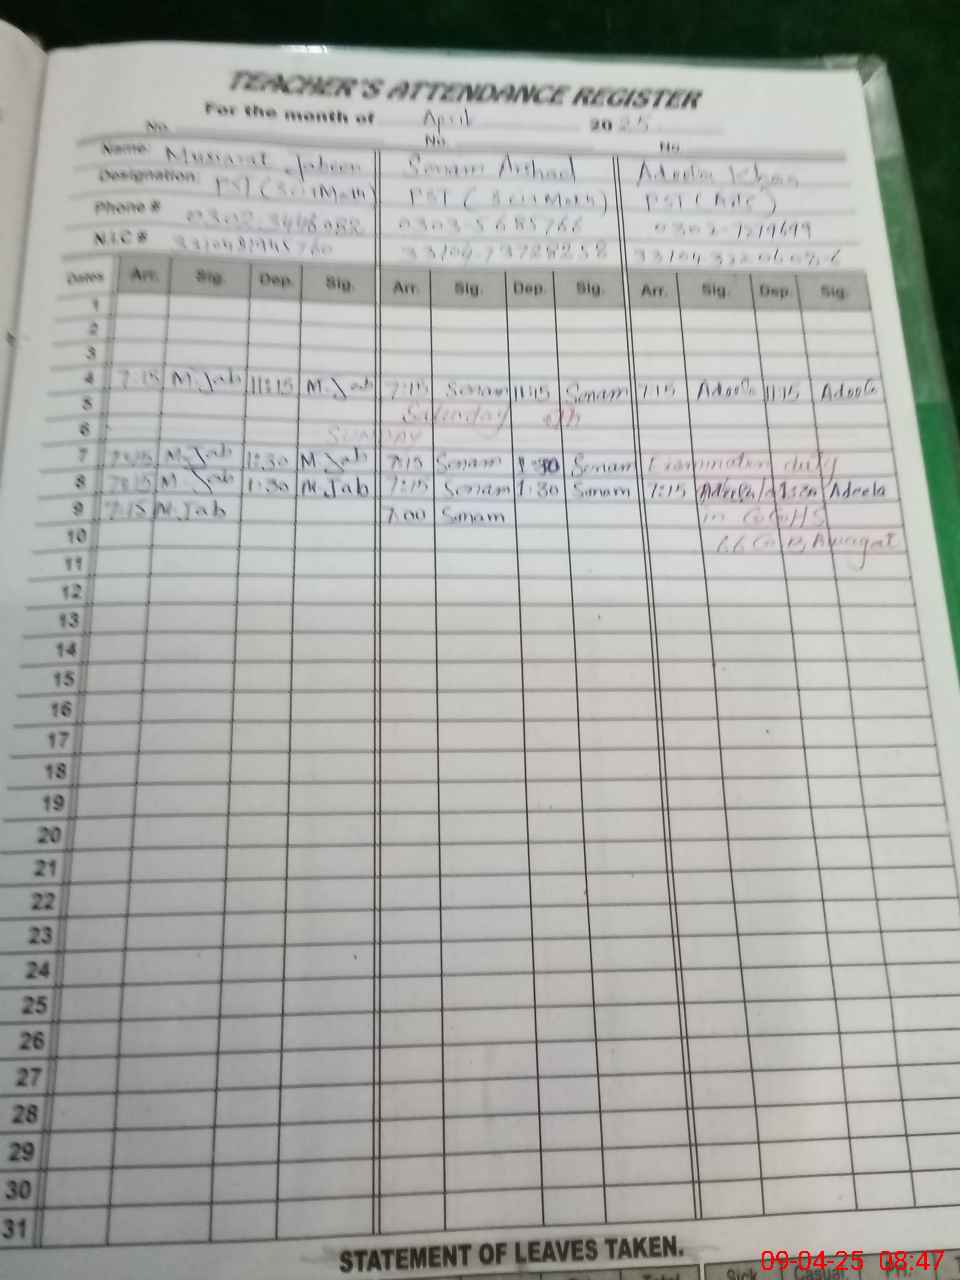 TEACHER'S ATTENDANCE REGISTER
For the month of April 2025
No. No. No.
Name: Musarat Jabeen Sonam Arshad Adeela Khan
Designation: PST (Sci:Math) PST (Sci:Math) PST (Arts)
Phone # 0302-3446082 0303 5685766 0302-7219699
N.I.C #
Dates Arr. Sig. Dep. Sig. Arr. Sig. Dep. Sig. Arr. Sig. Dep. Sig.
1
2
3
4 7:15 M.Jab 11:15 M.Jab 7:15 Sonam 11:15 Sonam 7:15 Adeela 11:15 Adeela
5 Saturday off
6 SUNDAY
7 7:15 M.Jab 1:30 M.Jab 7:15 Sonam 1:30 Sonam Examination duty
8 7:15 M.Jab 1:30 M.Jab 7:15 Sonam 1:30 Sonam 7:15 Adeela 1:30 Adeela
9 7:15 M.Jab 7:00 Sonam in GGHS
10 Awagat
11
12
13
14
15
16
17
18
19
20
21
22
23
24
25
26
27
28
29
30
31
STATEMENT OF LEAVES TAKEN.
Total Sick Casual
09-04-25 08:47